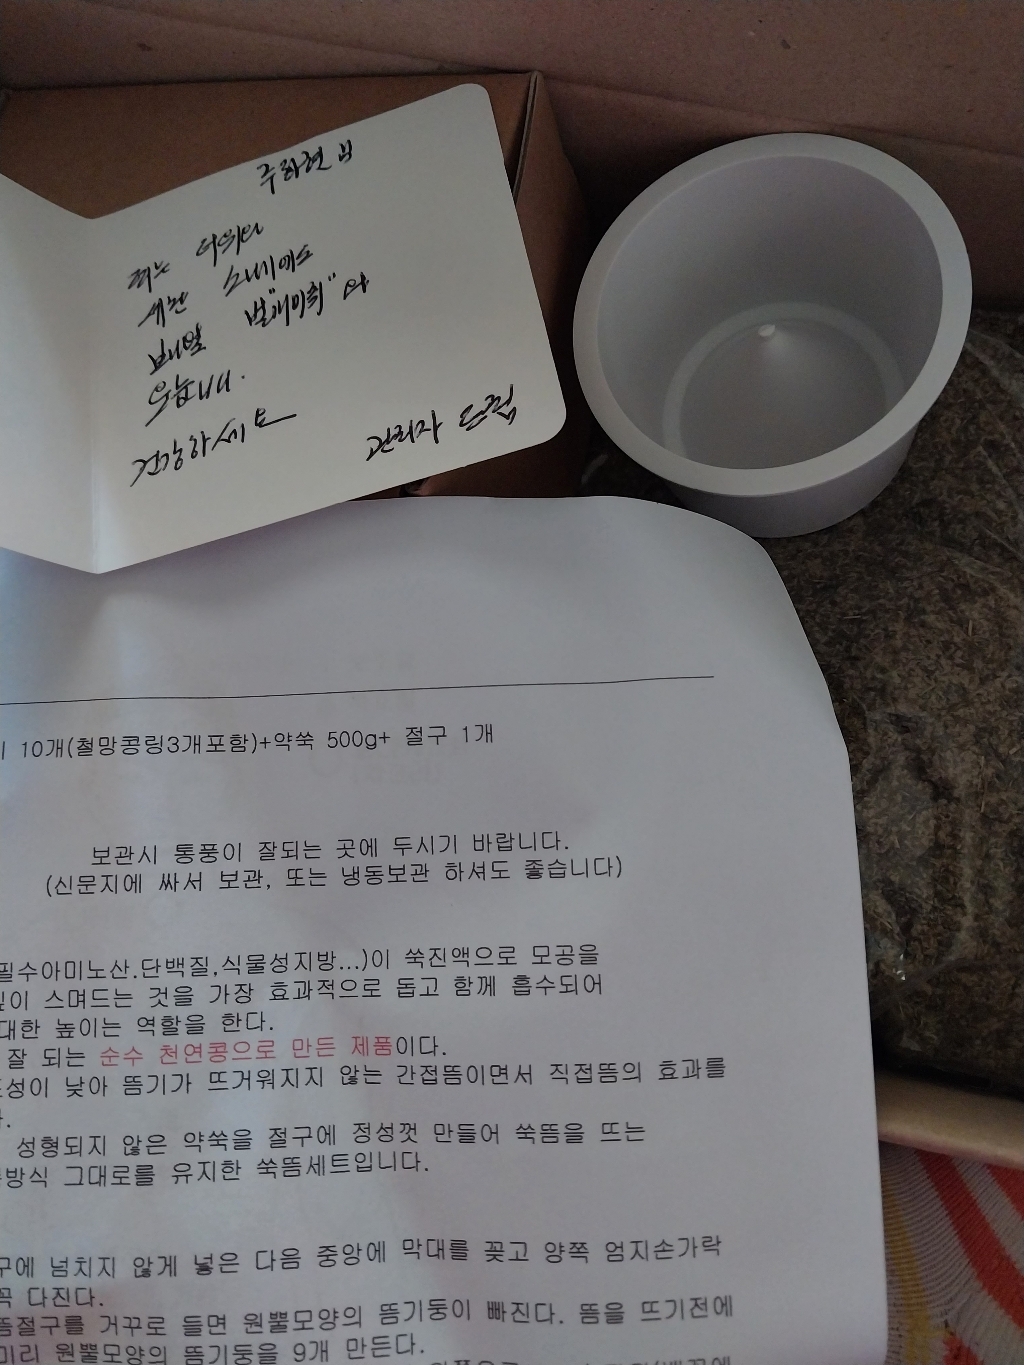 주하현 님
저는 여의도
세현 오네에스
별"개미취"와
매일
웃습니다.
건강하세요
관리자 드림
10개(철망콩링3개포함)+약쑥 500g+ 절구 1개
보관시 통풍이 잘되는 곳에 두시기 바랍니다.
(신문지에 싸서 보관, 또는 냉동보관 하셔도 좋습니다)
필수아미노산.단백질,식물성지방...)이 쑥진액으로 모공을
깊이 스며드는 것을 가장 효과적으로 돕고 함께 흡수되어
대한 높이는 역할을 한다.
잘 되는 순수 천연콩으로 만든 제품이다.
도성이 낮아 뜸기가 뜨거워지지 않는 간접뜸이면서 직접뜸의 효과를
성형되지 않은 약쑥을 절구에 정성껏 만들어 쑥뜸을 뜨는
방식 그대로를 유지한 쑥뜸세트입니다.
구에 넘치지 않게 넣은 다음 중앙에 막대를 꽂고 양쪽 엄지손가락
꼭 다진다.
뜸절구를 거꾸로 들면 원뿔모양의 뜸기둥이 빠진다. 뜸을 뜨기전에
미리 원뿔모양의 뜸기둥을 9개 만든다.